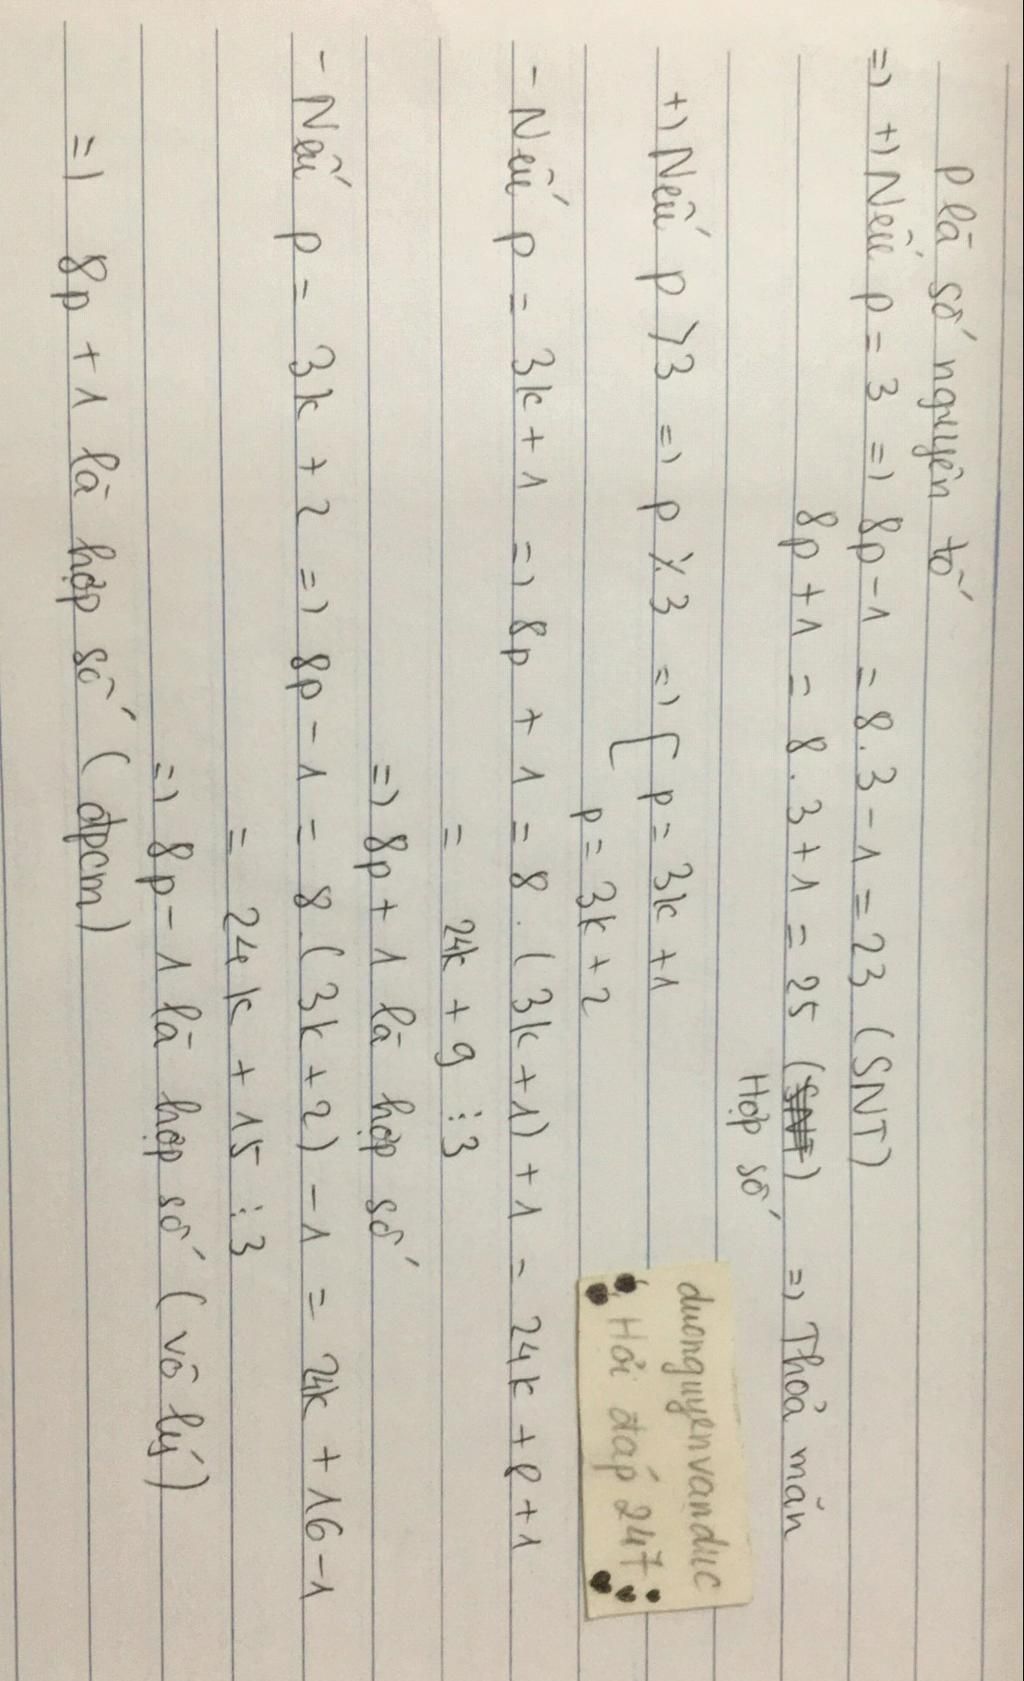 p là số nguyên tố
=) +) Nếu p = 3 =) 8p - 1 = 8.3 - 1 = 23 (SNT)
8p + 1 = 8.3 + 1 = 25 (SNT) =) Thoả mãn
Hợp số
+) Nếu p > 3 =) p ⋮̸ 3 =) [ p = 3k + 1
p = 3k + 2
- Nếu p = 3k + 1 =) 8p + 1 = 8.(3k + 1) + 1 = 24k + 8 + 1
= 24k + 9 ⋮ 3
=) 8p + 1 là hợp số
- Nếu p = 3k + 2 =) 8p - 1 = 8.(3k + 2) - 1 = 24k + 16 - 1
= 24k + 15 ⋮ 3
=) 8p - 1 là hợp số (vô lý)
=) 8p + 1 là hợp số (đpcm)
duonguyenvanduc
Hỏi đáp 247